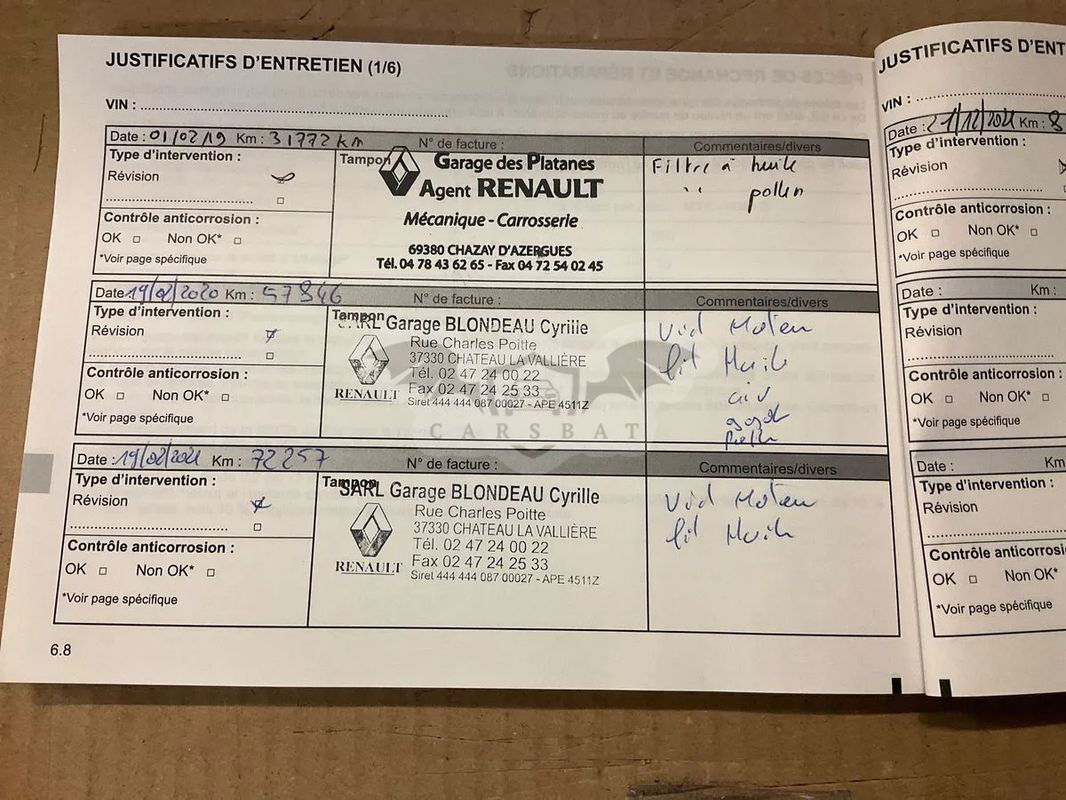 JUSTIFICATIFS D'ENTRETIEN (1/6)
VIN :
Date : 01/02/19 Km : 31772 km N° de facture : Commentaires/divers
Type d'intervention :
Révision
Contrôle anticorrosion :
OK Non OK*
*Voir page spécifique
Tampon
Garage des Platanes
Agent RENAULT
Mécanique - Carrosserie
69380 CHAZAY D'AZERGUES
Tél. 04 78 43 62 65 - Fax 04 72 54 02 45
Filtre à huile
" pollen
Date 19/02/2020 Km : 57846 N° de facture : Commentaires/divers
Type d'intervention :
Révision
Contrôle anticorrosion :
OK Non OK*
*Voir page spécifique
Tampon
SARL Garage BLONDEAU Cyrille
Rue Charles Poitte
37330 CHATEAU LA VALLIÈRE
Tél. 02 47 24 00 22
Fax 02 47 24 25 33
Siret 444 444 087 00027 - APE 4511Z
RENAULT
CARSBAT
Vid Moteu
fil Huile
Date : 19/02/2021 Km : 72257 N° de facture : Commentaires/divers
Type d'intervention :
Révision
Contrôle anticorrosion :
OK Non OK*
*Voir page spécifique
Tampon
SARL Garage BLONDEAU Cyrille
Rue Charles Poitte
37330 CHATEAU LA VALLIÈRE
Tél. 02 47 24 00 22
Fax 02 47 24 25 33
Siret 444 444 087 00027 - APE 4511Z
RENAULT
Vid Moteu
fil Huile
6.8
JUSTIFICATIFS D'ENT
VIN :
Date : 21/12/2021 Km : 8
Type d'intervention :
Révision
Contrôle anticorrosion :
OK Non OK*
*Voir page spécifique
Date : Km :
Type d'intervention :
Révision
Contrôle anticorrosion :
OK Non OK*
*Voir page spécifique
Date : Km
Type d'intervention :
Révision
Contrôle anticorrosi
OK Non OK*
*Voir page spécifique